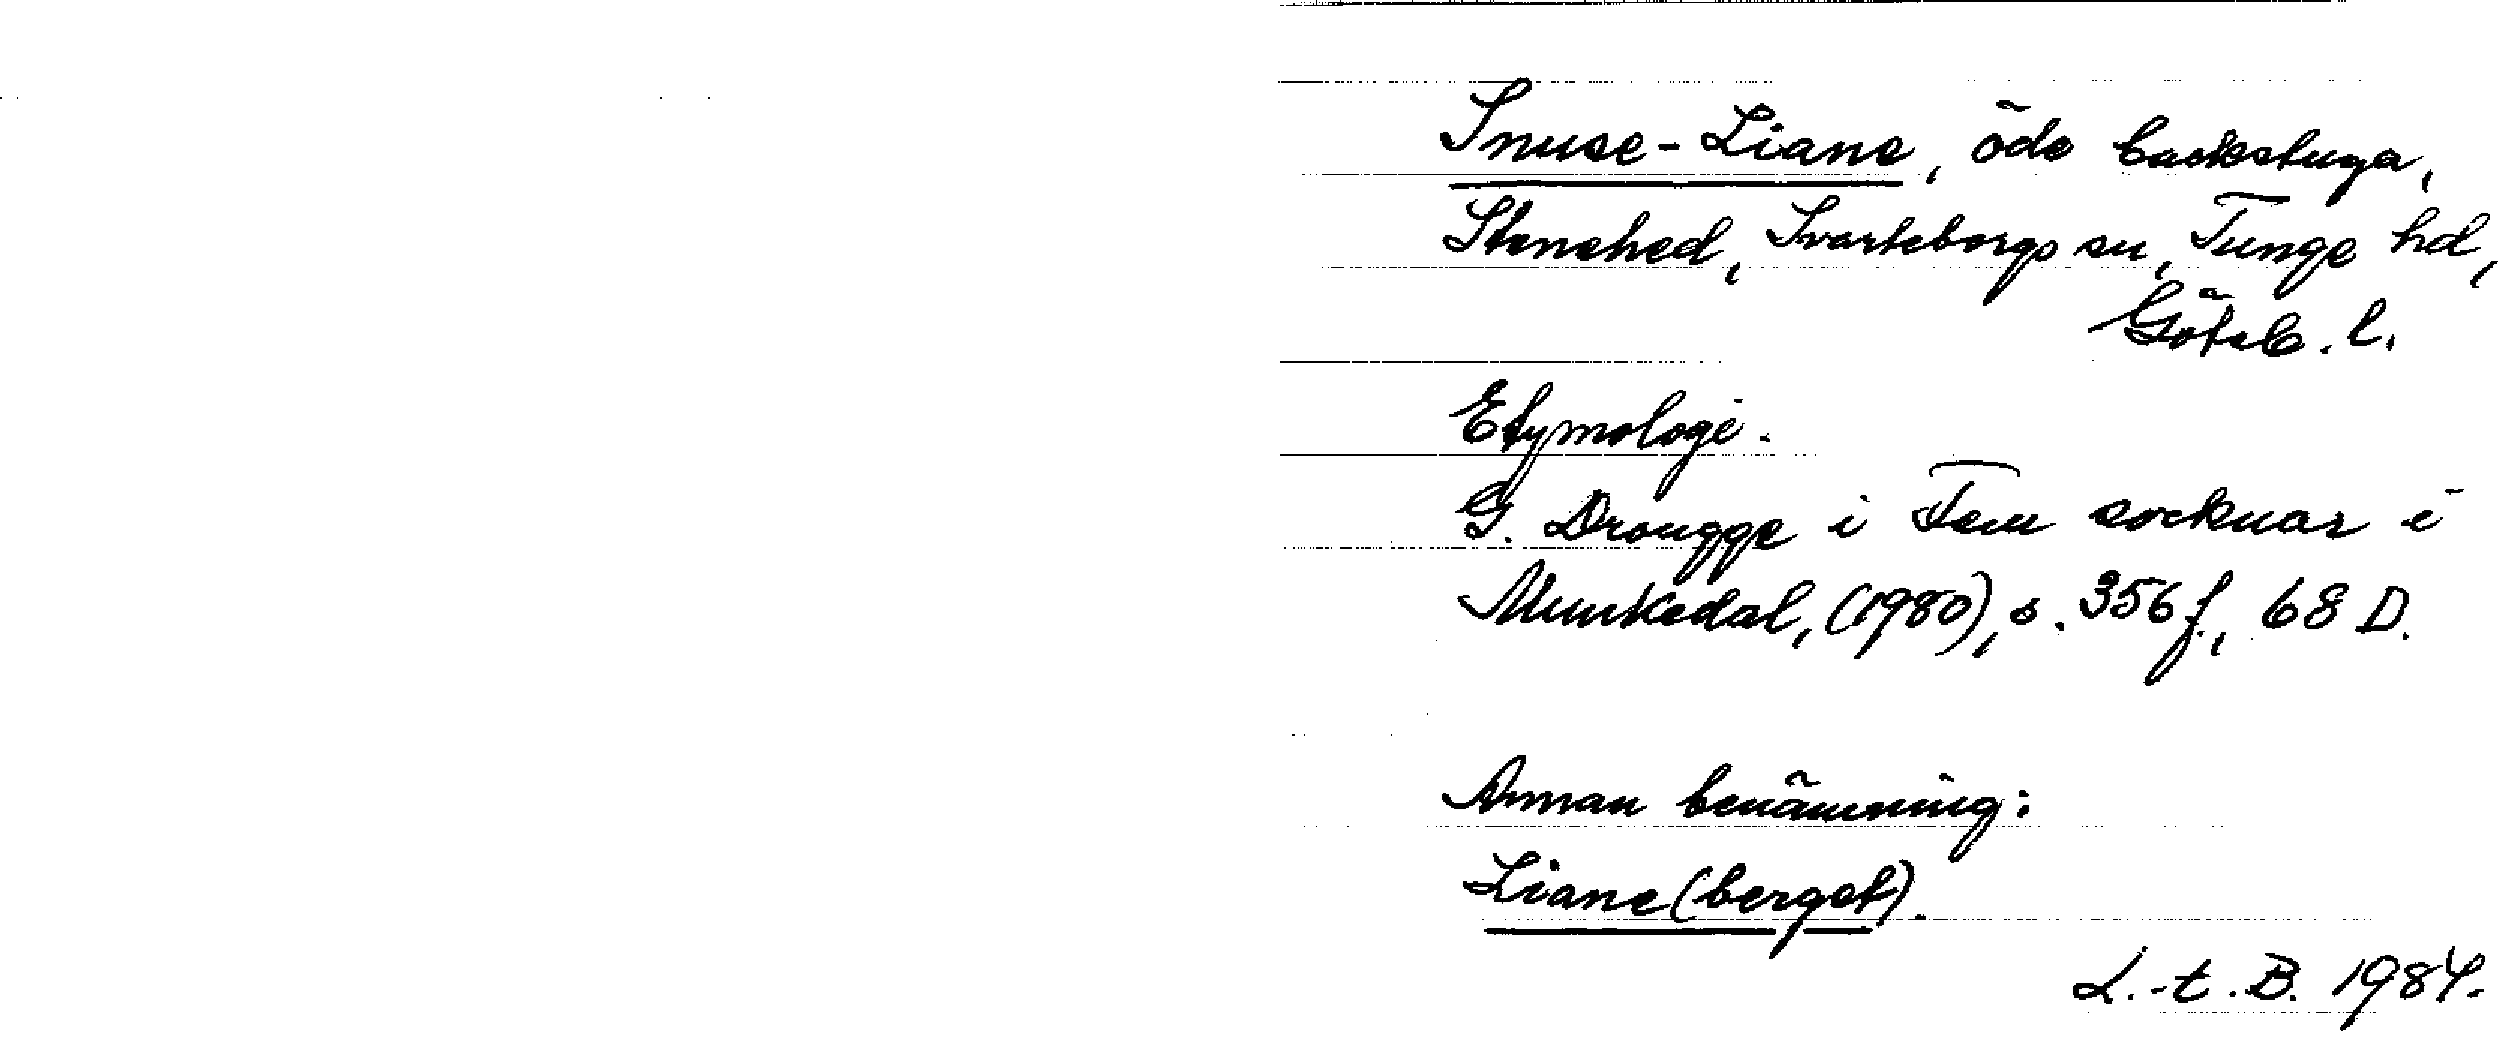 Snuse-Liane, öde backstuga,
Stenehed, Svarteborgs sn, Tunge hd,
Göteb. l.
Etymologi.
G. Drougge i Fem socknar i
Munkedal, (1980), s. 356 f., 68 D.
Annan benämning:
Liane(berget).
L.-t. B. 1984.